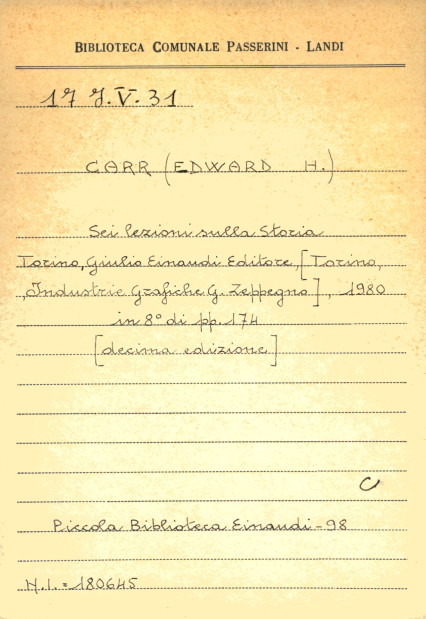 BIBLIOTECA COMUNALE PASSERINI - LANDI
17 J.V. 31
CARR (EDWARD H.)
Sei lezioni sulla Storia
Torino, Giulio Einaudi Editore, [Torino,
Industrie Grafiche G. Zeppegno], 1980
in 8° di pp. 174
[decima edizione]
C
Piccola Biblioteca Einaudi - 98
N.I. = 180645